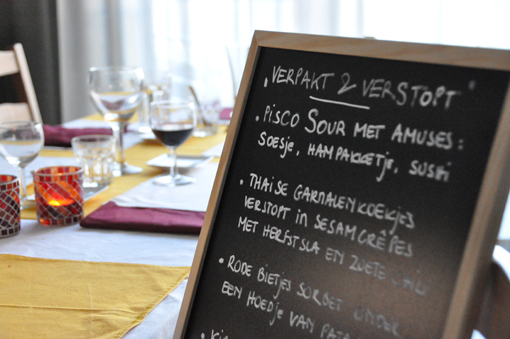 "VERPAKT & VERSTOPT"
• PISCO SOUR MET AMUSES:
SOESJE, HAMPAKKETJE, SUSHI
• THAISE GARNALENKOEKJES
VERSTOPT IN SESAMCRÊPES
MET HERFSTSLA EN ZOETE CHILI
• RODE BIETJES SORBET ONDER
EEN HOEDJE VAN